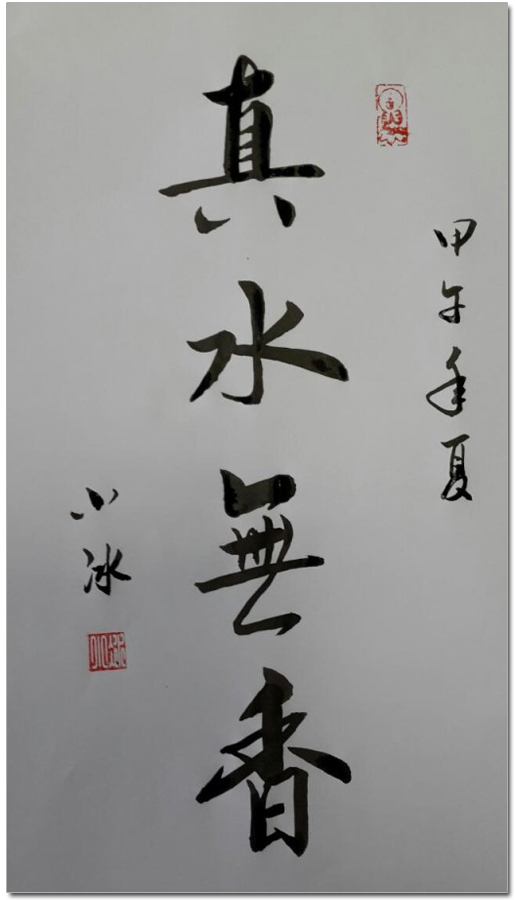 甲午年夏
真水無香
小冰
小冰